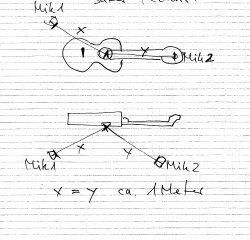 Mik1
x
y
Mik2
x
y
Mik1
Mik2
x = y ca. 1 Meter